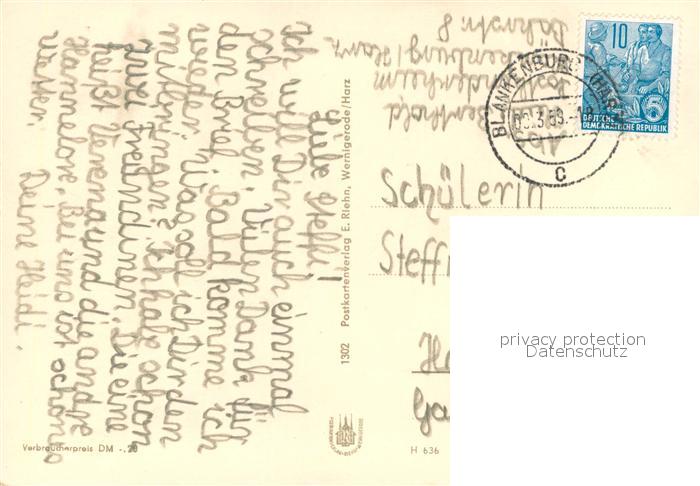 Liebe Steffi!
Ich will Dir auch einmal
schreiben. Vielen Dank für
den Brief. Bald komme ich
wieder. Was soll ich Dir den
mitbringen? Ich habe schon
zwei Freundinen. Die eine
heißt Verena und die andre
Hannelore. Bei uns ist schönes
Deine Heidi.
Verbraucherpreis DM -.20
1302 Postkartenverlag E. Riehn, Wernigerode/Harz
H 636
Abs.
Kinderheim
Blankenburg/Harz
10
DEUTSCHE
DEMOKRATISCHE REPUBLIK
5
BLANKENBURG (HARZ)
c
Schülerin
Steff
Ha
Ga
privacy protection
Datenschutz